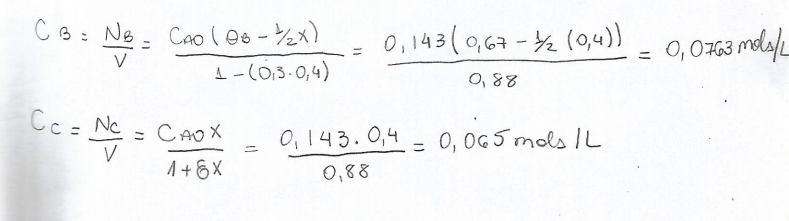 C B = N_B/V = C_AO (Θ_B - 1/2 X) / 1 - (0,3 . 0,4) = 0,143 (0,67 - 1/2 (0,4)) / 0,88 = 0,0763 mols/L
C_C = N_C/V = C_AO X / 1 + εX = 0,143 . 0,4 / 0,88 = 0,065 mols/L